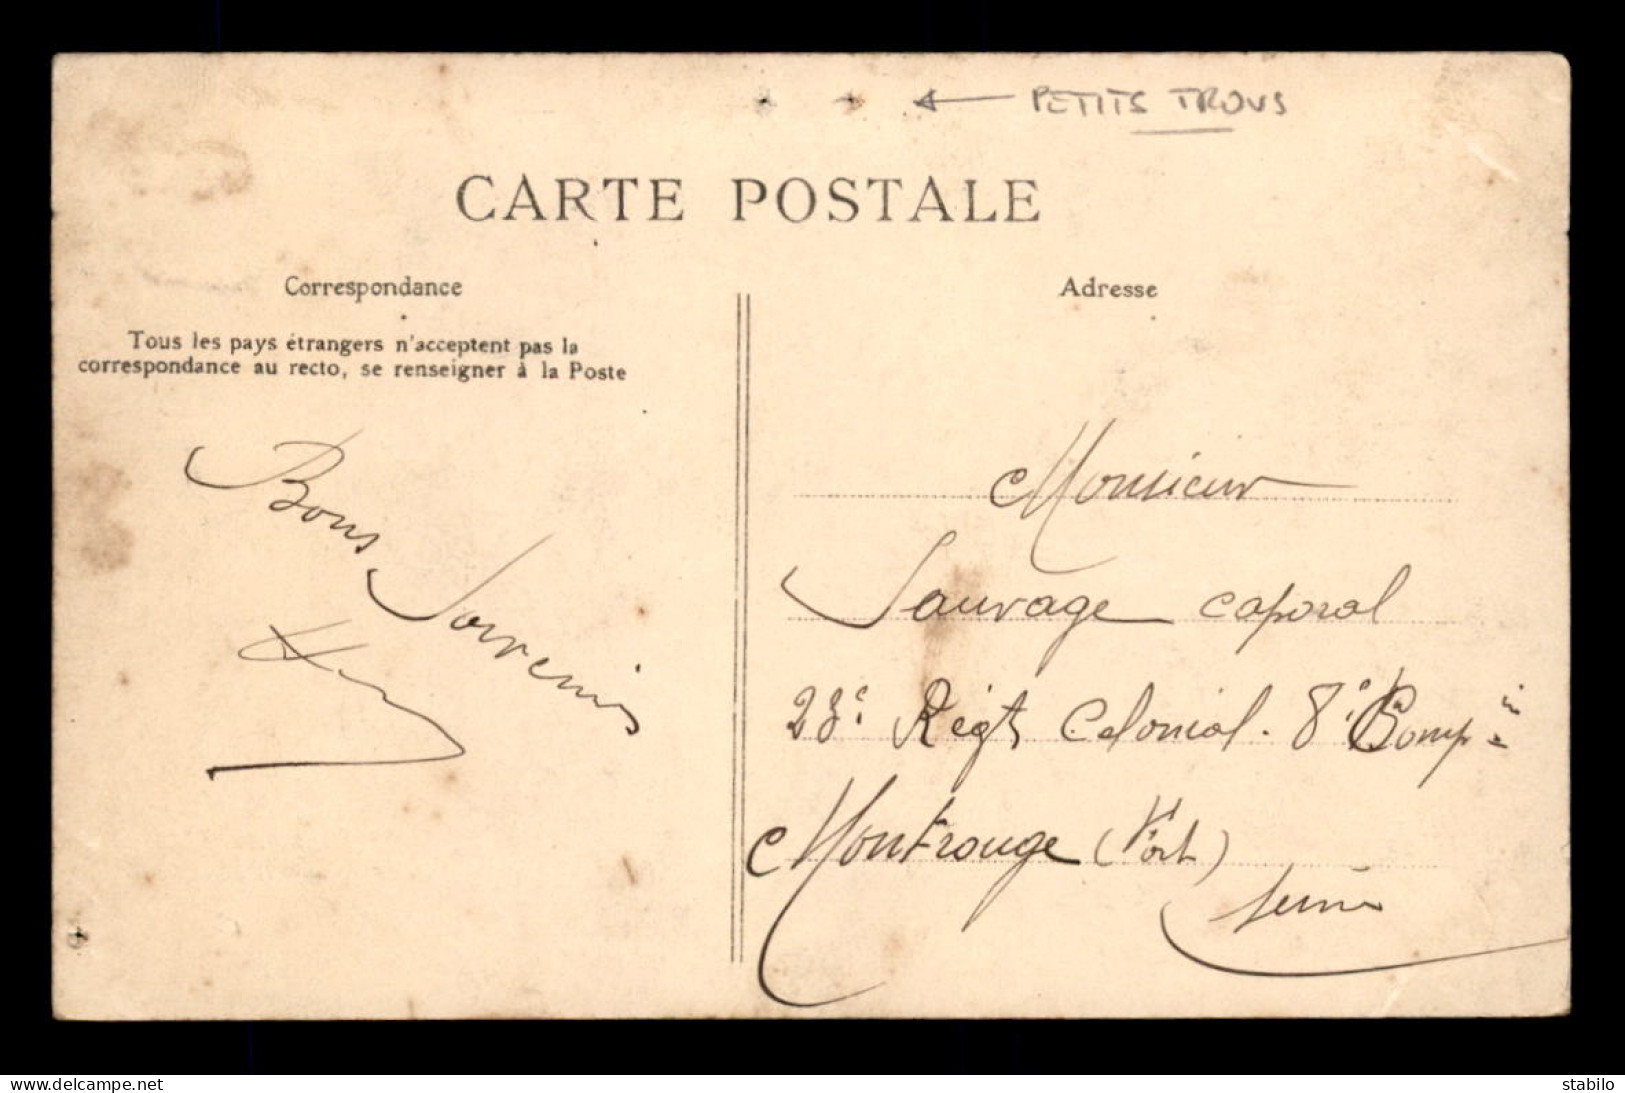 PETITS TROUS
CARTE POSTALE
Correspondance
Tous les pays étrangers n'acceptent pas la
correspondance au recto, se renseigner à la Poste
Bons
Souvenirs
Adresse
Monsieur
Sauvage caporal
23e Régt Colonial. 8e Comp ie
Montrouge (Fort)
Seine
www.delcampe.net
stabilo